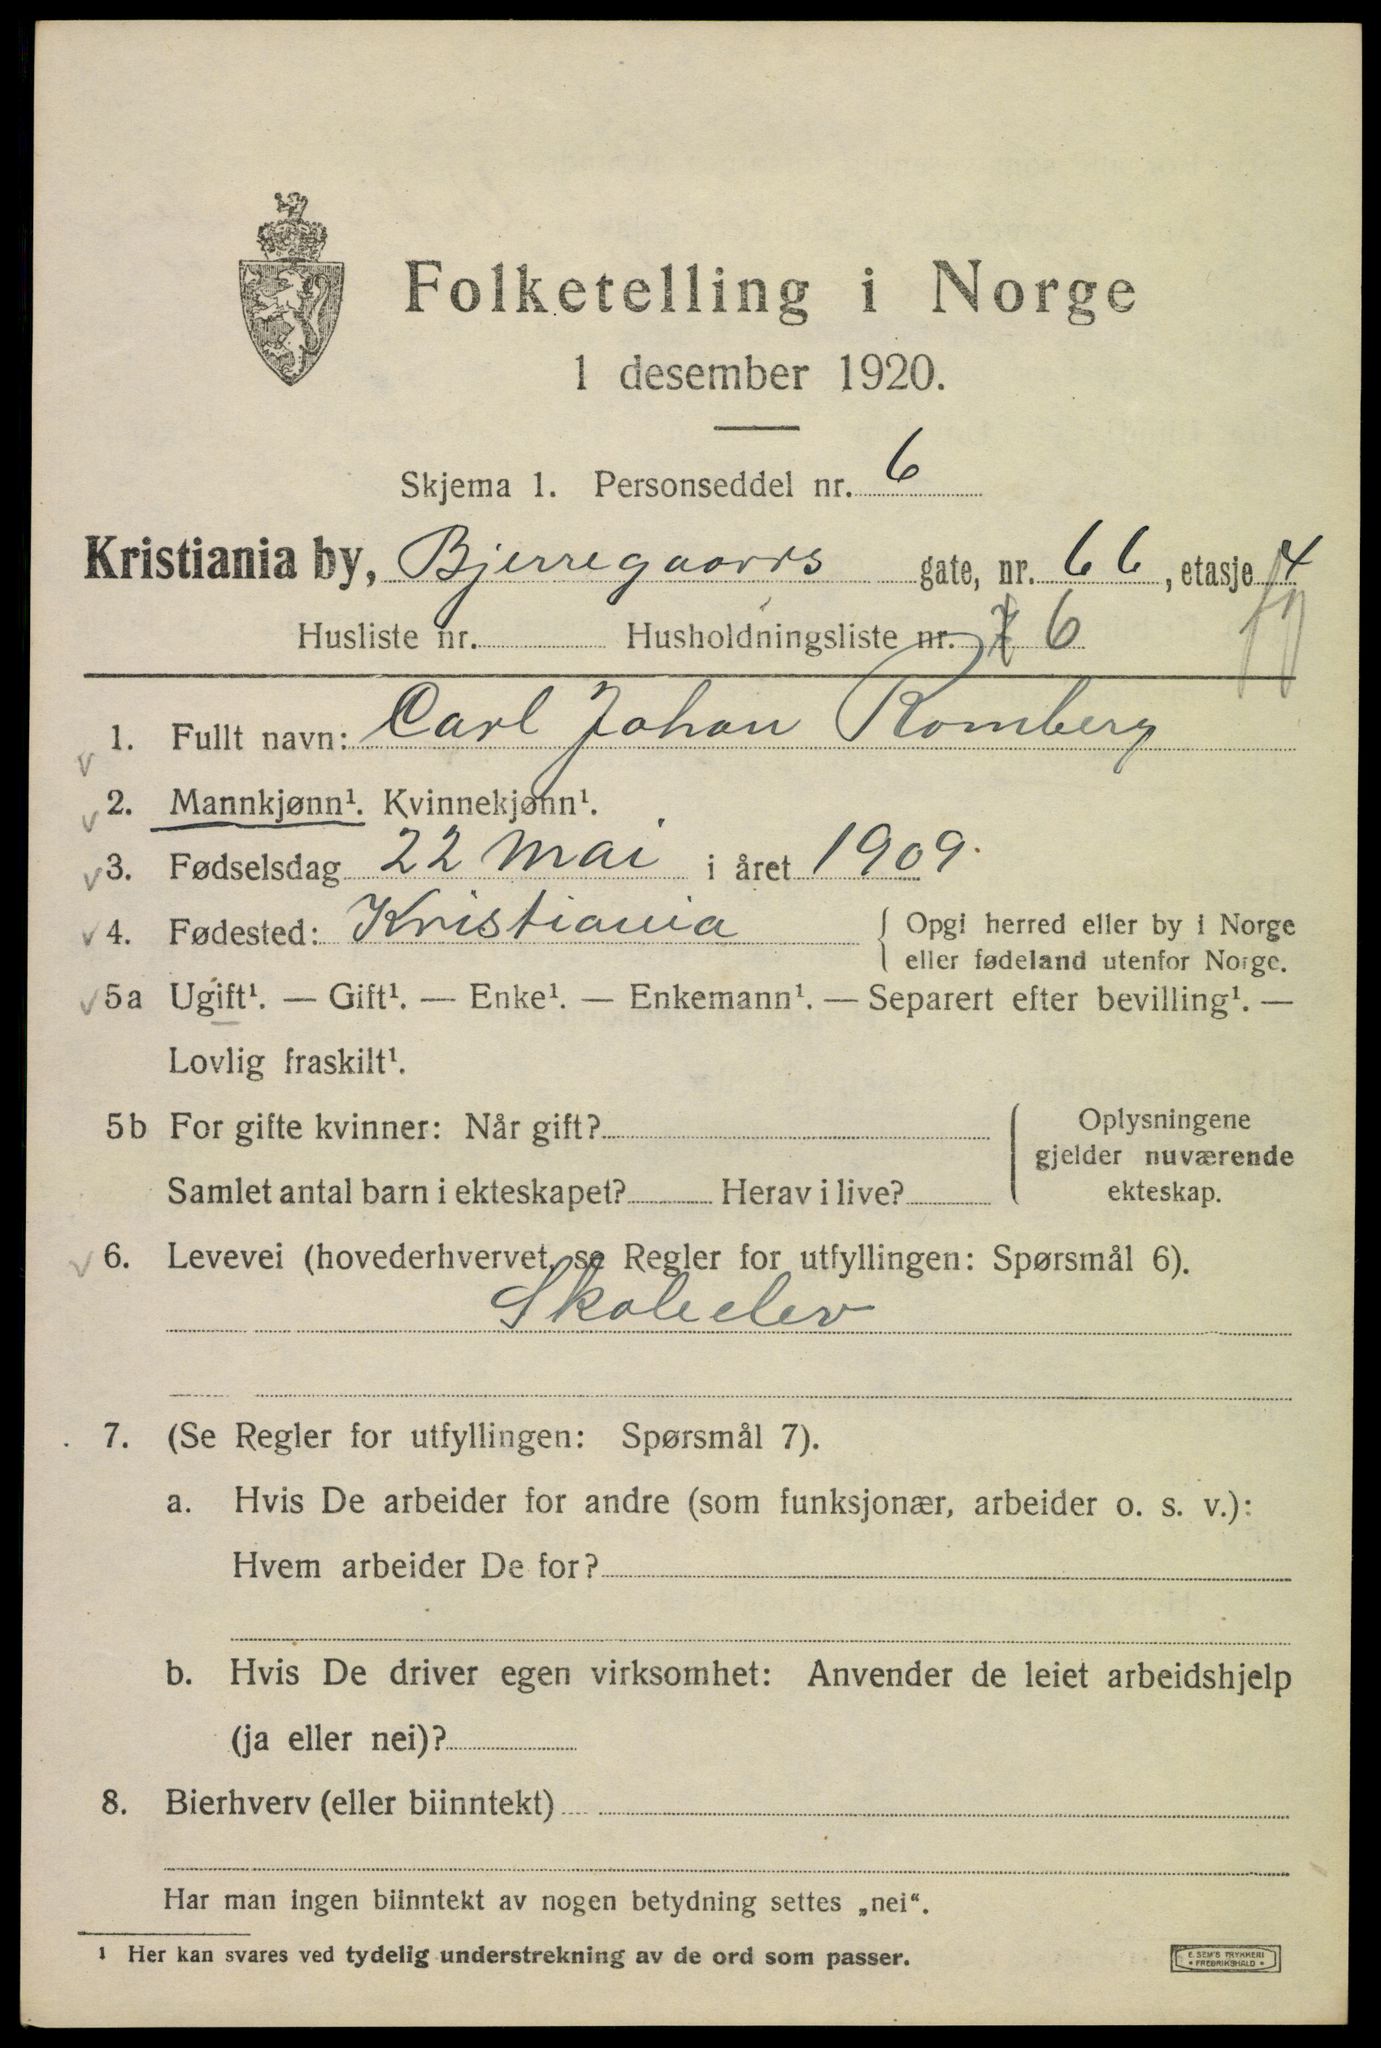 Folketelling i Norge
1 desember 1920.
Skjema 1. Personseddel nr. 6
Kristiania by, Bjerregaards gate, nr. 66, etasje 4
Husliste nr. Husholdningsliste nr. 6
1. Fullt navn: Carl Johan Romberg
2. Mannkjønn¹. Kvinnekjønn¹.
3. Fødselsdag 22 mai i året 1909.
4. Fødested: Kristiania { Opgi herred eller by i Norge
eller fødeland utenfor Norge.
5a Ugift¹. — Gift¹. — Enke¹. — Enkemann¹. — Separert efter bevilling¹. —
Lovlig fraskilt¹.
5b For gifte kvinner: Når gift?
Samlet antal barn i ekteskapet? Herav i live?
Oplysningene
gjelder nuværende
ekteskap.
6. Levevei (hovederhvervet, se Regler for utfyllingen: Spørsmål 6).
Skoleelev
7. (Se Regler for utfyllingen: Spørsmål 7).
a. Hvis De arbeider for andre (som funksjonær, arbeider o. s. v.):
Hvem arbeider De for?
b. Hvis De driver egen virksomhet: Anvender de leiet arbeidshjelp
(ja eller nei)?
8. Bierhverv (eller biinntekt)
Har man ingen biinntekt av nogen betydning settes „nei“.
¹ Her kan svares ved tydelig understrekning av de ord som passer.
E. SEM'S TRYKKERI
• FREDRIKSHALD •